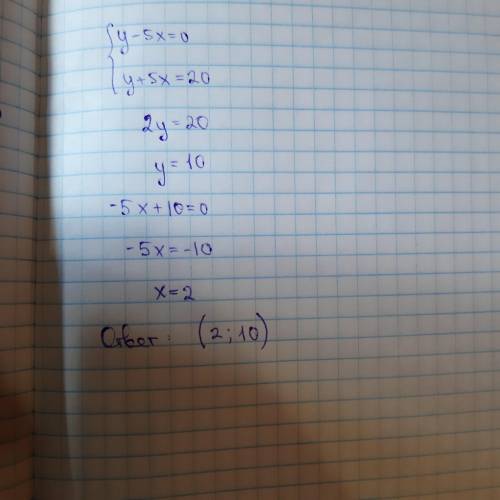 y-5x=0
y+5x=20
2y=20
y=10
-5x+10=0
-5x=-10
x=2
Ответ: (2;10)